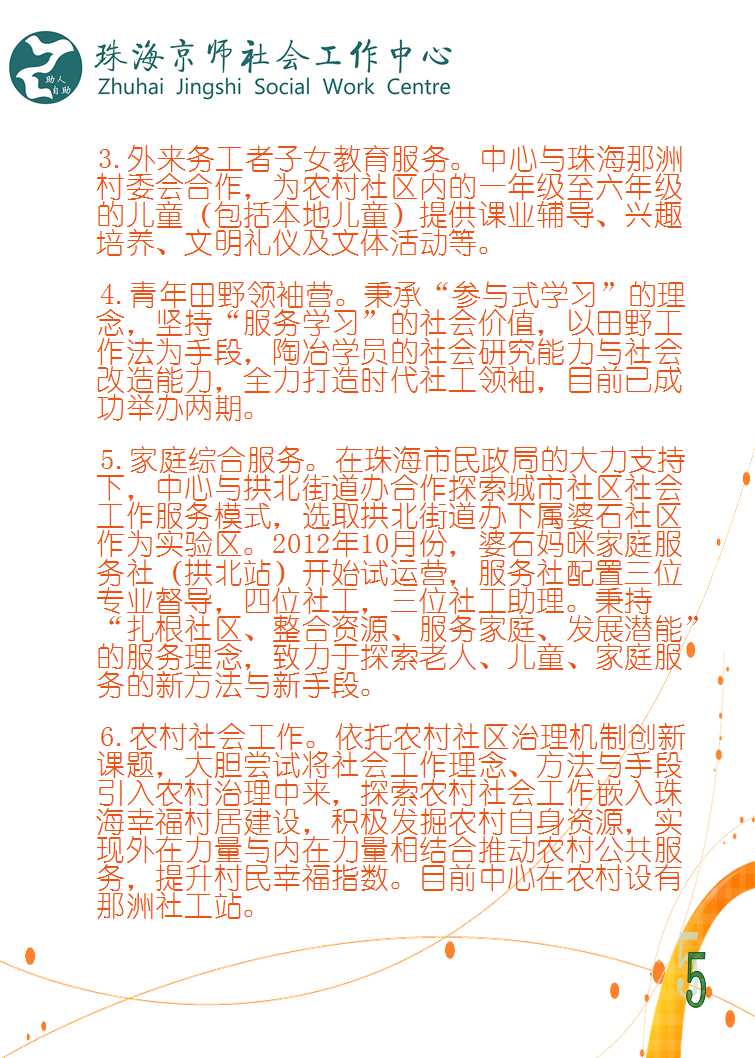 珠海京师社会工作中心
Zhuhai Jingshi Social Work Centre
助人
自助
3.外来务工者子女教育服务。中心与珠海那洲
村委会合作，为农村社区内的一年级至六年级
的儿童（包括本地儿童）提供课业辅导、兴趣
培养、文明礼仪及文体活动等。
4.青年田野领袖营。秉承“参与式学习”的理
念，坚持“服务学习”的社会价值，以田野工
作法为手段，陶冶学员的社会研究能力与社会
改造能力，全力打造时代社工领袖，目前已成
功举办两期。
5.家庭综合服务。在珠海市民政局的大力支持
下，中心与拱北街道办合作探索城市社区社会
工作服务模式，选取拱北街道办下属婆石社区
作为实验区。2012年10月份，婆石妈咪家庭服
务社（拱北站）开始试运营，服务社配置三位
专业督导，四位社工，三位社工助理。秉持
“扎根社区、整合资源、服务家庭、发展潜能”
的服务理念，致力于探索老人、儿童、家庭服
务的新方法与新手段。
6.农村社会工作。依托农村社区治理机制创新
课题，大胆尝试将社会工作理念、方法与手段
引入农村治理中来，探索农村社会工作嵌入珠
海幸福村居建设，积极发掘农村自身资源，实
现外在力量与内在力量相结合推动农村公共服
务，提升村民幸福指数。目前中心在农村设有
那洲社工站。
5